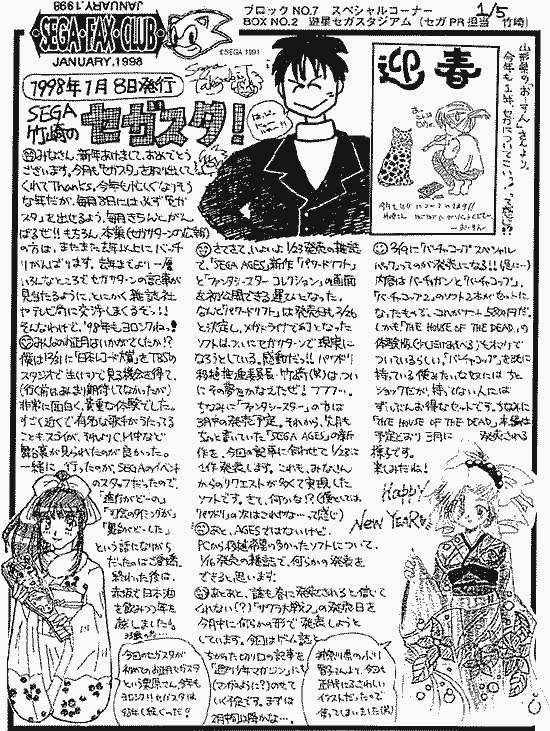 JANUARY.1998
SEGA・FAX・CLUB
JANUARY,1998
ブロックNO.7 スペシャルコーナー 1/5
BOX NO.2 遊星セガスタジアム（セガPR担当 竹崎）
©SEGA 1991
1998年1月8日発行
SEGA
竹崎の
セガスタ！
迎春
みなさん、新年あけまして、おめでとう
ございます。今月も「セガスタ」を取り出して
くれてThanks。今年も忙しくなりそう
な年だが、毎月8日には必ず「セガ
スタ」を出せるよう、毎月きちんとがん
ばるぜ!!もちろん、本業(セガサターンの広報)
の方は、またまた去年以上にバーチ
リがんばります。去年までより一層
いろんなところでセガサターンの記事が
見当たるように、とにかく雑誌社
やテレビ局に交渉しまくるモン!!
そんなわけで、'98年もヨロシクね。
みんなのお正月はいかがでしたか?
僕は12/31に「日本レコード大賞」をTBSの
スタジオで生(ナマ)で見る機会を得て、
(行く前はあまり期待してなかったが)
非常に面白く、貴重な体験でした。
すごく近くで有名な歌手がうたってる
こともスゴイが、それよりCM中など
舞台裏が見られたのが良かった。
一緒に行ったのが、SEGAのイベント
のスタッフだったので、
「進行がどーの」
「司会のタイミングが」
「照明がどーした」
という話になりながら
だったのはご愛嬌。
終わった後は、
赤坂で日本酒
を飲みつつ年を
越しましたね。
さてさて、いよいよ1/23発売の雑誌
で、「SEGA AGES」新作「パワードリフト」
と「ファンタシースター コレクション」の画面
を初公開できる運びとなった。
なんと「パワードリフト」は発売日も2/26
と決定し、メガドライブで幻となった
ソフトは、ついにセガサターンで現実に
なろうとしている。感動だっ!!パワドリ
移植推進委員長・竹崎(笑)は、つい
にその夢をかなえたぜ! フフフ…。
ちなみに「ファンタシースター」の方は
3月中の発売予定。それから、先月も
ちょっと書いていた「SEGA AGES」の新
作を、今回の記事に合わせて1/23に
1作発表します。これも、みなさん
からのリクエストが多くて実現した
ソフトです。さて、何かな?(僕としては
「パワドリ」の次はこれかな…って感じ)
あと、AGESではないけど、
PCから移植希望の多かったソフトについて、
1/16発売の雑誌で、何らかの発表を
できると思います。
あとあと、誰も春に発売されると信じて
くれない(?)「サクラ大戦2」の発売日を
今月中に何らかの形で発表しようと
しています。今回はゲーム誌と
ちがった切り口の記事を
「週刊少年マガジン」にも
(マガジンように?)のせて
いく予定です。まずは
2月中旬以降かな…。
2/19に「バーチャコップ スペシャル
パック」ってのが発売になる!!
内容はバーチャガンと「バーチャコップ」、
「バーチャコップ2」のソフト2本がセットに
なったもので、これがナント5800円だ。
しかも「THE HOUSE OF THE DEAD」の
体験版もオマケで
ついているらしい。「バーチャコップ」をすでに
持っている僕みたいな人にはちと
ショックだが、持ってない人には
ずいぶんお得なセットです。ちなみに
「THE HOUSE OF THE DEAD」本編は
予定どおり3月に発売される
様子です。
楽しみだね!
HAPPY
NEW YEAR!
今回のセガスタが
初めてのお正月セガスタ
という皆さん、今年も
ヨロシク!セガスタは
98年も続くのだ!